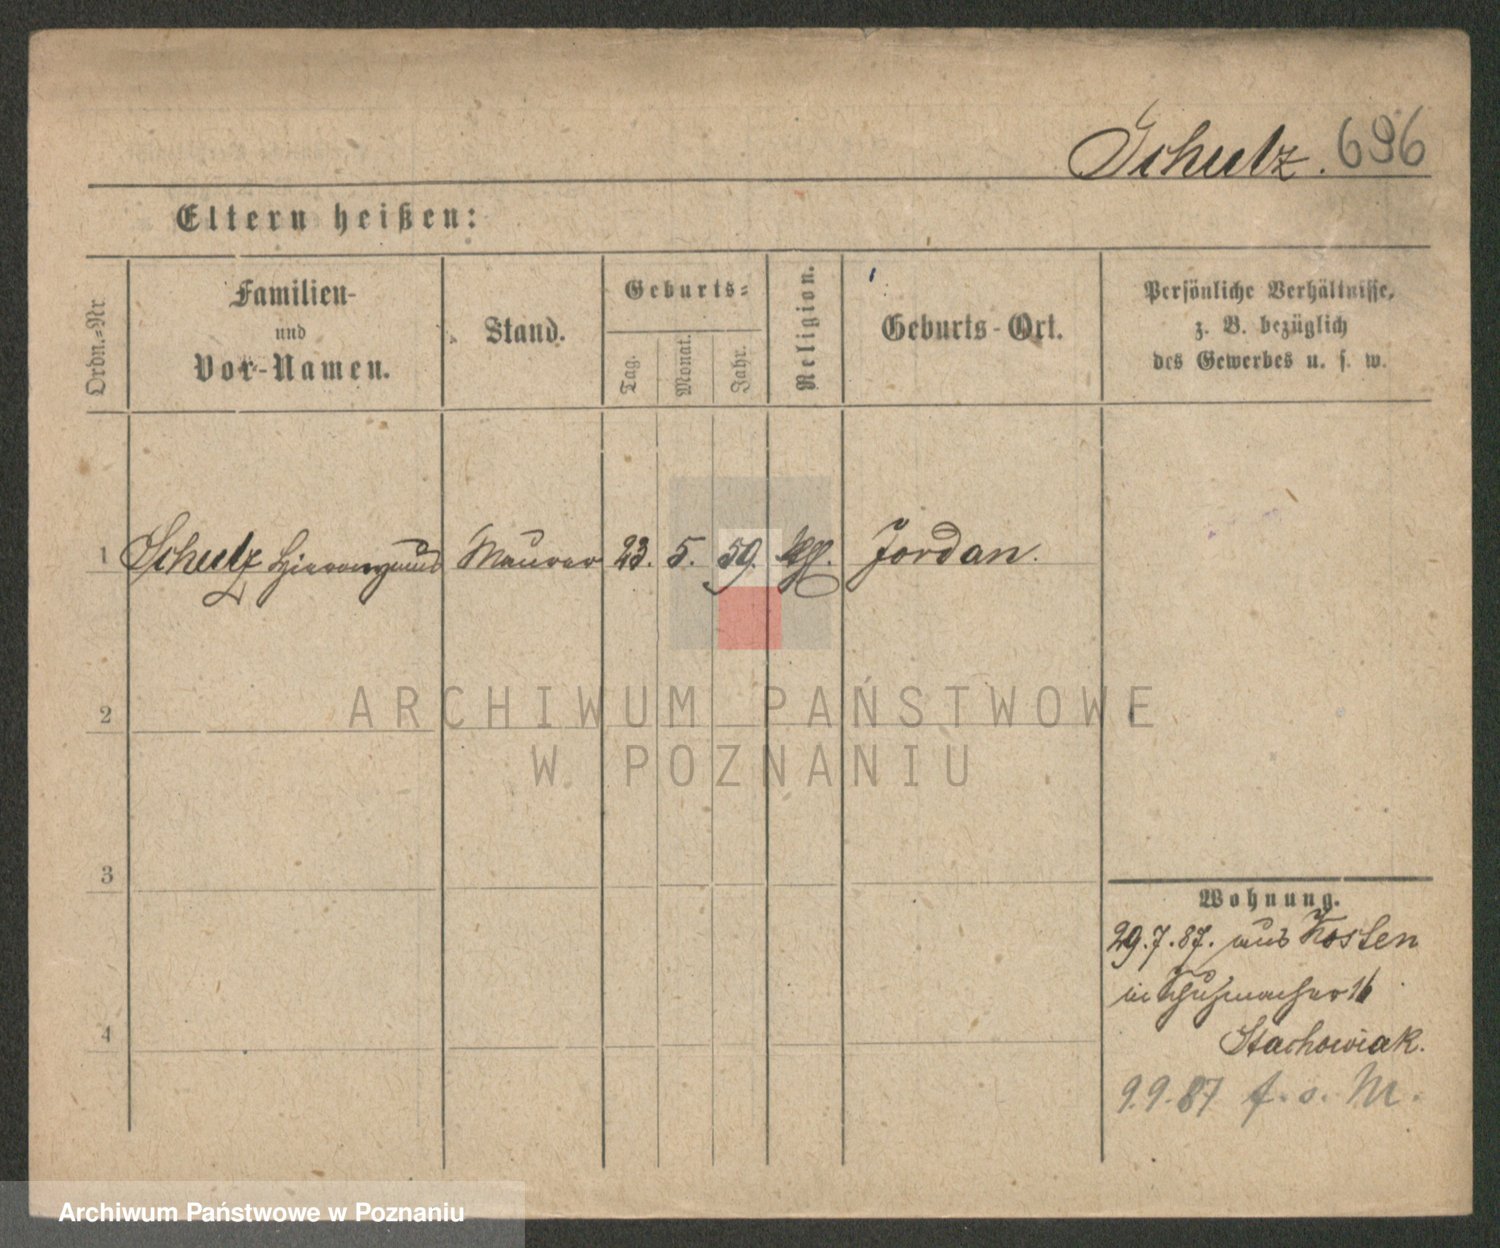 Schulz. 696
Eltern heißen:
Ordn.-Nr
Familien-
und
Vor-Namen.
Stand.
Geburts-
Tag.
Monat.
Jahr.
Religion.
Geburts-Ort.
Persönliche Verhältnisse,
z. B. bezüglich
des Gewerbes u. s. w.
1 Schulz Hieronymus Maurer 23. 5. 59. Jordan.
2
ARCHIWUM PAŃSTWOWE
W POZNANIU
3
Wohnung.
29.7.87. aus Kosten
in Schuhmacher 16
Stachowiak.
4
9.9.87 f. o. M.
Archiwum Państwowe w Poznaniu